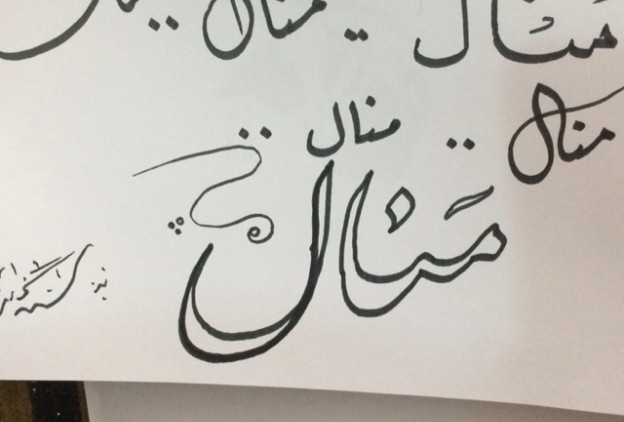 منال
منال
منال
منال
منال